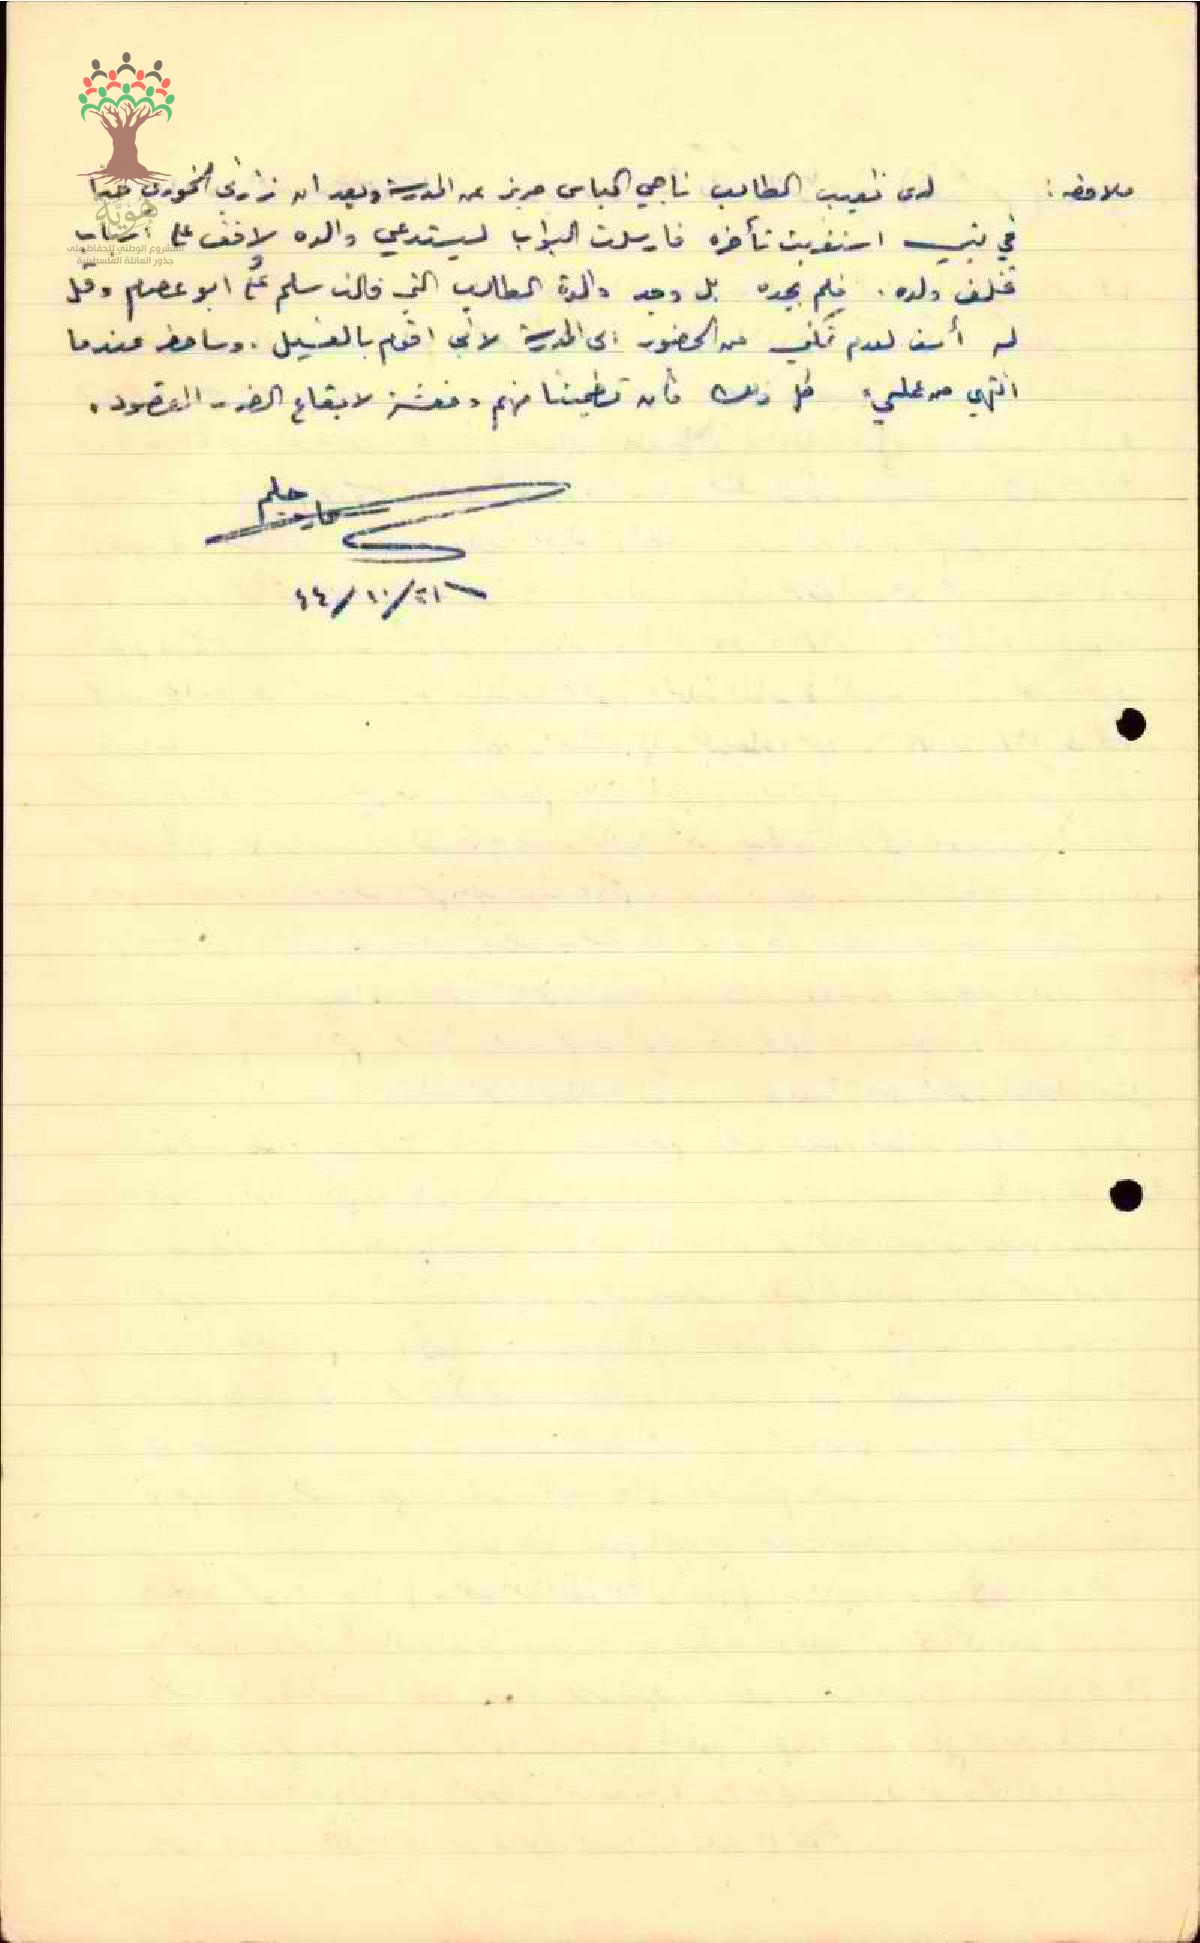 هُوِيَّة
المشروع الوطني للحفاظ على
جذور العائلة الفلسطينية
ملاحظة : لدى تغيب الطالب ناجي الياس حريز عن المدرسة وبعد ان زارني الخوري حنا
في بيتي استغربت تأخره فارسلت البواب ليستدعي والده لاقف على اسباب
تخلف ولده . فلم يجده بل وجد والدة الطالب التي قالت سلم على ابو عصام وقل
له أسف لعدم تمكني من الحضور الى المدرسة لاني اقوم بالغسيل . وساحضر عندما
انتهي من عملي . كل ذلك كان منهم لايقاع الضرر المقصود .
حليم
٢١/١٠/٤٤